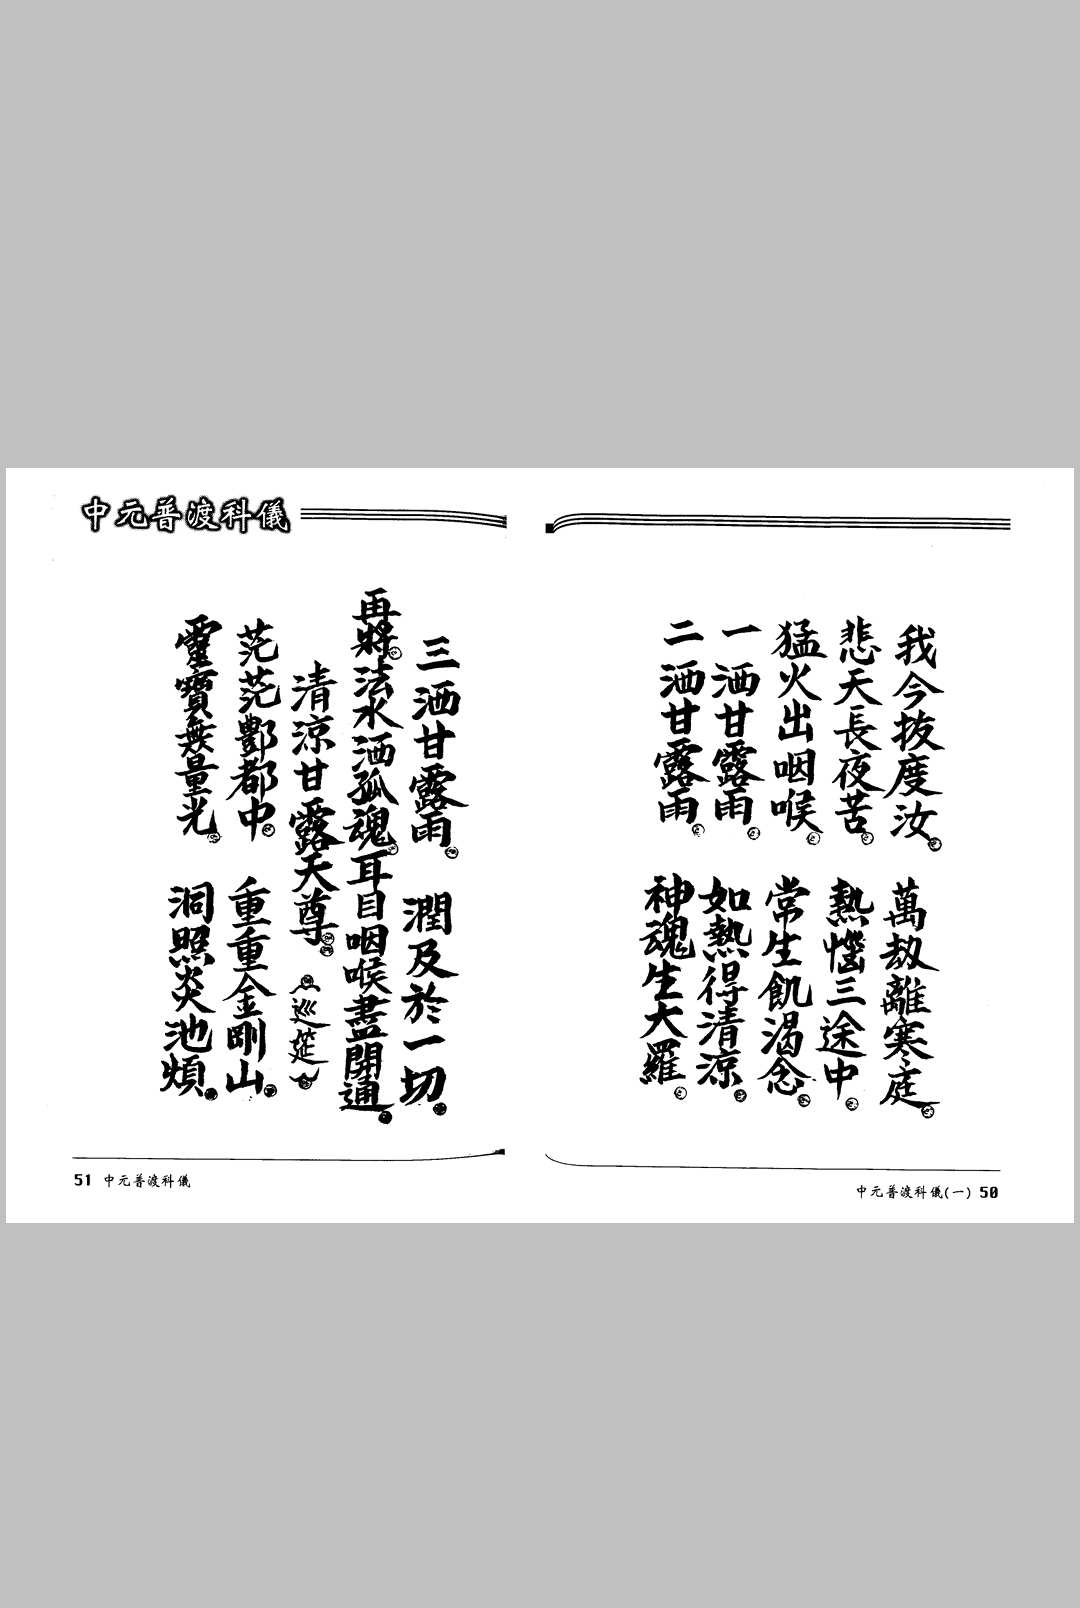 我今拔度汝 萬劫離寒庭
悲天長夜苦 熱惱三途中
猛火出咽喉 常生飢渴念
一洒甘露雨 如熱得清涼
二洒甘露雨 神魂生大羅
中元普渡科儀(一) 50
中元普渡科儀
三洒甘露雨 潤及於一切
再將法水洒孤魂耳目咽喉盡開通
清涼甘露天尊 巡筵
茫茫酆都中 重重金剛山
靈寶無量光 洞照炎池煩
51 中元普渡科儀